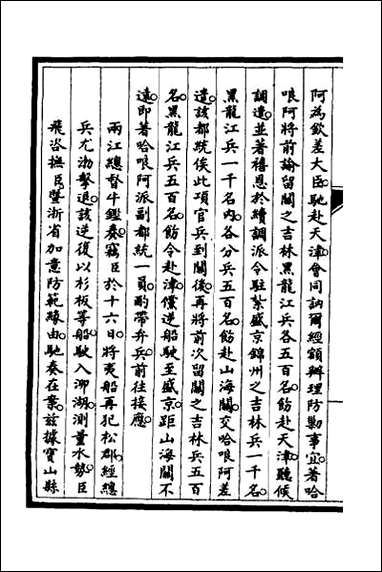 阿為欽差大臣馳赴天津會同訥爾經額辦理防勦事宜著哈
哴阿將前諭留關之吉林黑龍江兵各五百名飭赴天津聽候
調遣並著禧恩於續調派令駐紮盛京錦州之吉林兵一千名
黑龍江兵一千名內各分兵五百名飭赴山海關交哈哴阿差
遣該都統俟此項官兵到關後再將前次留關之吉林兵五百
名黑龍江兵五百名飭令赴津儻逆船駛至盛京距山海關不
遠即著哈哴阿派副都統一員酌帶弁兵前往接應
兩江總督牛鑑奏竊臣於十六日將夷船再犯松郡經總
兵尤渤擊退該逆復以杉板等船駛入泖湖測量水勢臣
飛咨撫臣暨浙省加意防範緣由馳奏在案茲據寶山縣